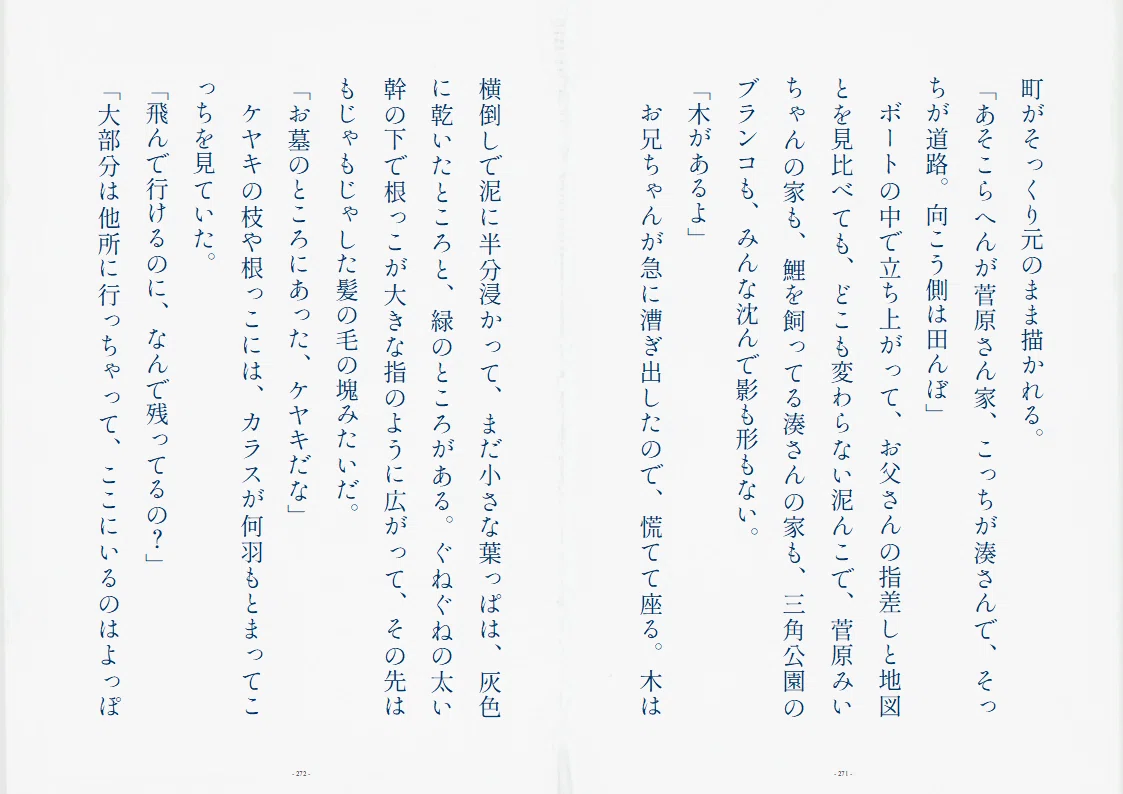 町がそっくり元のまま描かれる。
「あそこらへんが菅原さん家、こっちが湊さんで、そっ
ちが道路。向こう側は田んぼ」
ボートの中で立ち上がって、お父さんの指差しと地図
とを見比べても、どこも変わらない泥んこで、菅原みい
ちゃんの家も、鯉を飼ってる湊さんの家も、三角公園の
ブランコも、みんな沈んで影も形もない。
「木があるよ」
お兄ちゃんが急に漕ぎ出したので、慌てて座る。木は
- 271 -
横倒しで泥に半分浸かって、まだ小さな葉っぱは、灰色
に乾いたところと、緑のところがある。ぐねぐねの太い
幹の下で根っこが大きな指のように広がって、その先は
もじゃもじゃした髪の毛の塊みたいだ。
「お墓のところにあった、ケヤキだな」
ケヤキの枝や根っこには、カラスが何羽もとまってこ
っちを見ていた。
「飛んで行けるのに、なんで残ってるの？」
「大部分は他所に行っちゃって、ここにいるのはよっぽ
- 272 -